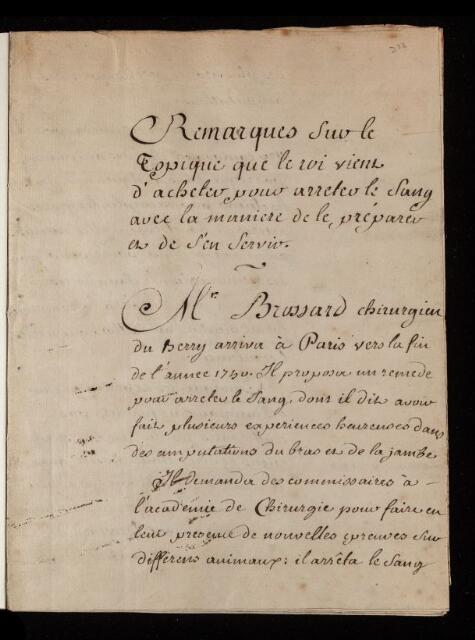 Remarques sur le
Topique que le roi vient
d'acheter pour arreter le Sang
avec la maniere de le préparer
et de s'en servir.
Mr. Brossard chirurgien
du Berry arriva à Paris vers la fin
de l'année 1750. Il proposa un remede
pour arreter le Sang, dont il dit avoir
fait plusieurs experiences heureuses dans
des amputations du bras et de la jambe
Il demanda des commissaires à
l'académie de Chirurgie pour faire en
leur presence de nouvelles epreuves sur
différens animaux: il arrêta le Sang